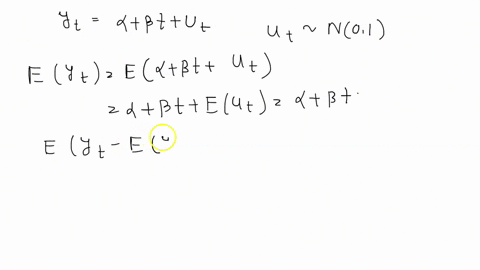 y_t = α+βt+U_t    U_t ~ N(0.1)
E (y_t) = E(α+βt+ U_t)
= α+βt+E(U_t) = α+βt.
E (y_t - E(